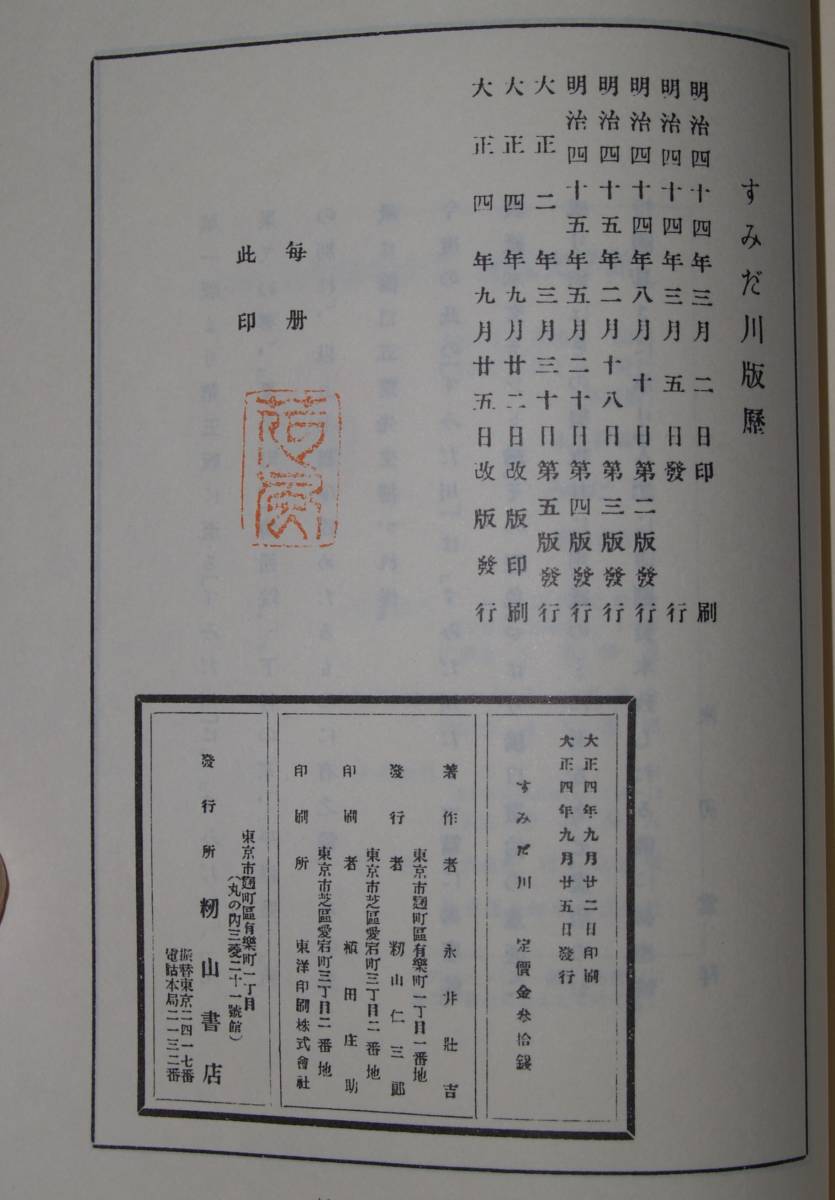 すみだ川版歷
明治四十四年三月二日印刷
明治四十四年三月五日發行
明治四十四年八月十日第二版發行
明治四十五年二月十八日第三版發行
明治四十五年五月二十日第四版發行
大正二年三月三十日第五版發行
大正四年九月廿二日改版印刷
大正四年九月廿五日改版發行
每册
此印
大正四年九月廿二日印刷
大正四年九月廿五日發行
すみだ川 定價金參拾錢
著作者 永井壯吉
東京市麴町區有樂町一丁目一番地
發行者 籾山仁三郞
東京市芝區愛宕町三丁目二番地
印刷者 植田庄助
東京市芝區愛宕町三丁目二番地
印刷所 東洋印刷株式會社
東京市麴町區有樂町一丁目
(丸の內三菱二十一號館)
發行所 籾山書店
振替東京二四一七番
電話本局二一三二番